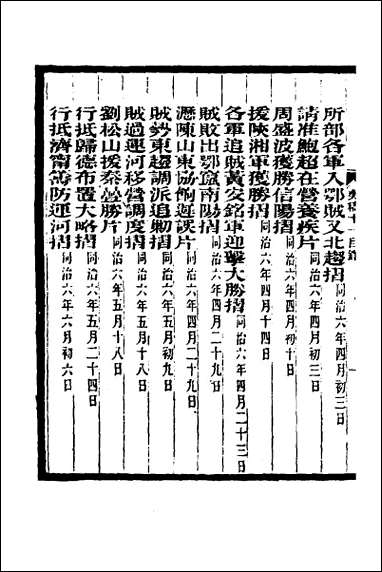 所部各軍入鄂賊又北趨摺同治六年四月初三日
請准鮑超在營養疾片同治六年四月初三日
周盛波獲勝信陽摺同治六年四月初十日
援陝湘軍獲勝摺同治六年四月十四日
各軍追賊黃安銘軍迎擊大勝摺同治六年四月二十三日
賊敗出鄂竄南陽摺同治六年四月二十九日
瀝陳山東協餉遲誤片同治六年四月二十九日
賊勢東趨調派追勦摺同治六年五月初九日
賊過運河移營調度摺同治六年五月十八日
劉松山援秦獲勝片同治六年五月十八日
行抵歸德布置大略摺同治六年五月二十四日
行抵濟甯籌防運河摺同治六年六月初六日